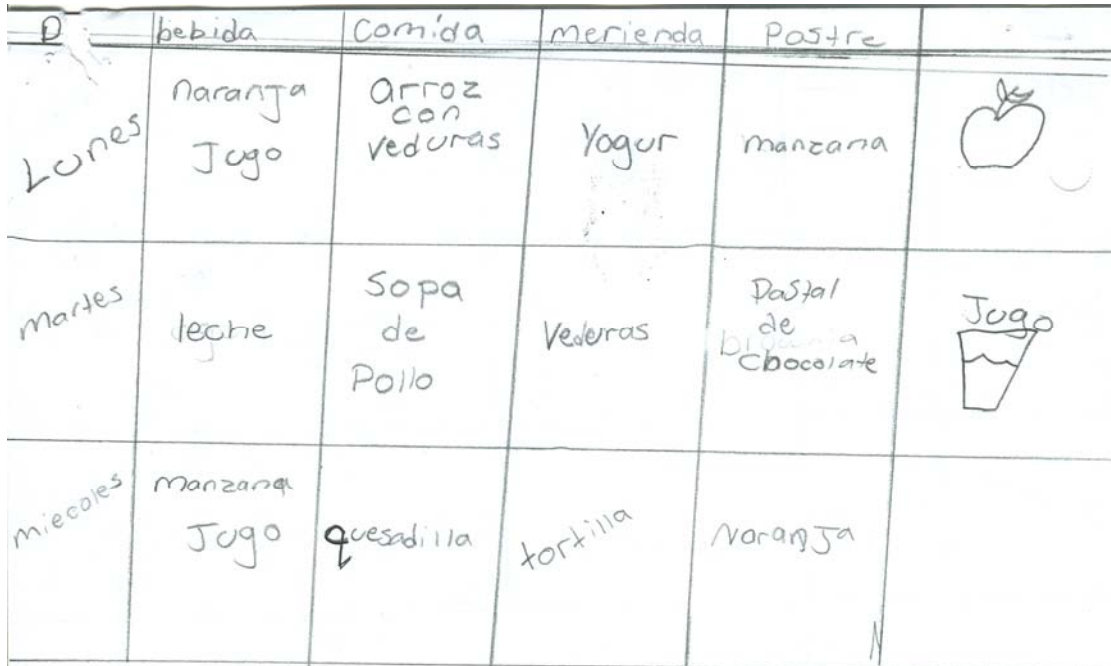 D bebida Comida merienda Postre
Lunes
naranJa
Jugo
arroz
con
veduras
Yogur
manzana
martes
leche
Sopa
de
Pollo
Vederas
Dastal
de
Chocolate
Jugo
miecoles
manzana
Jugo
quesadilla
tortilla
NaranJa